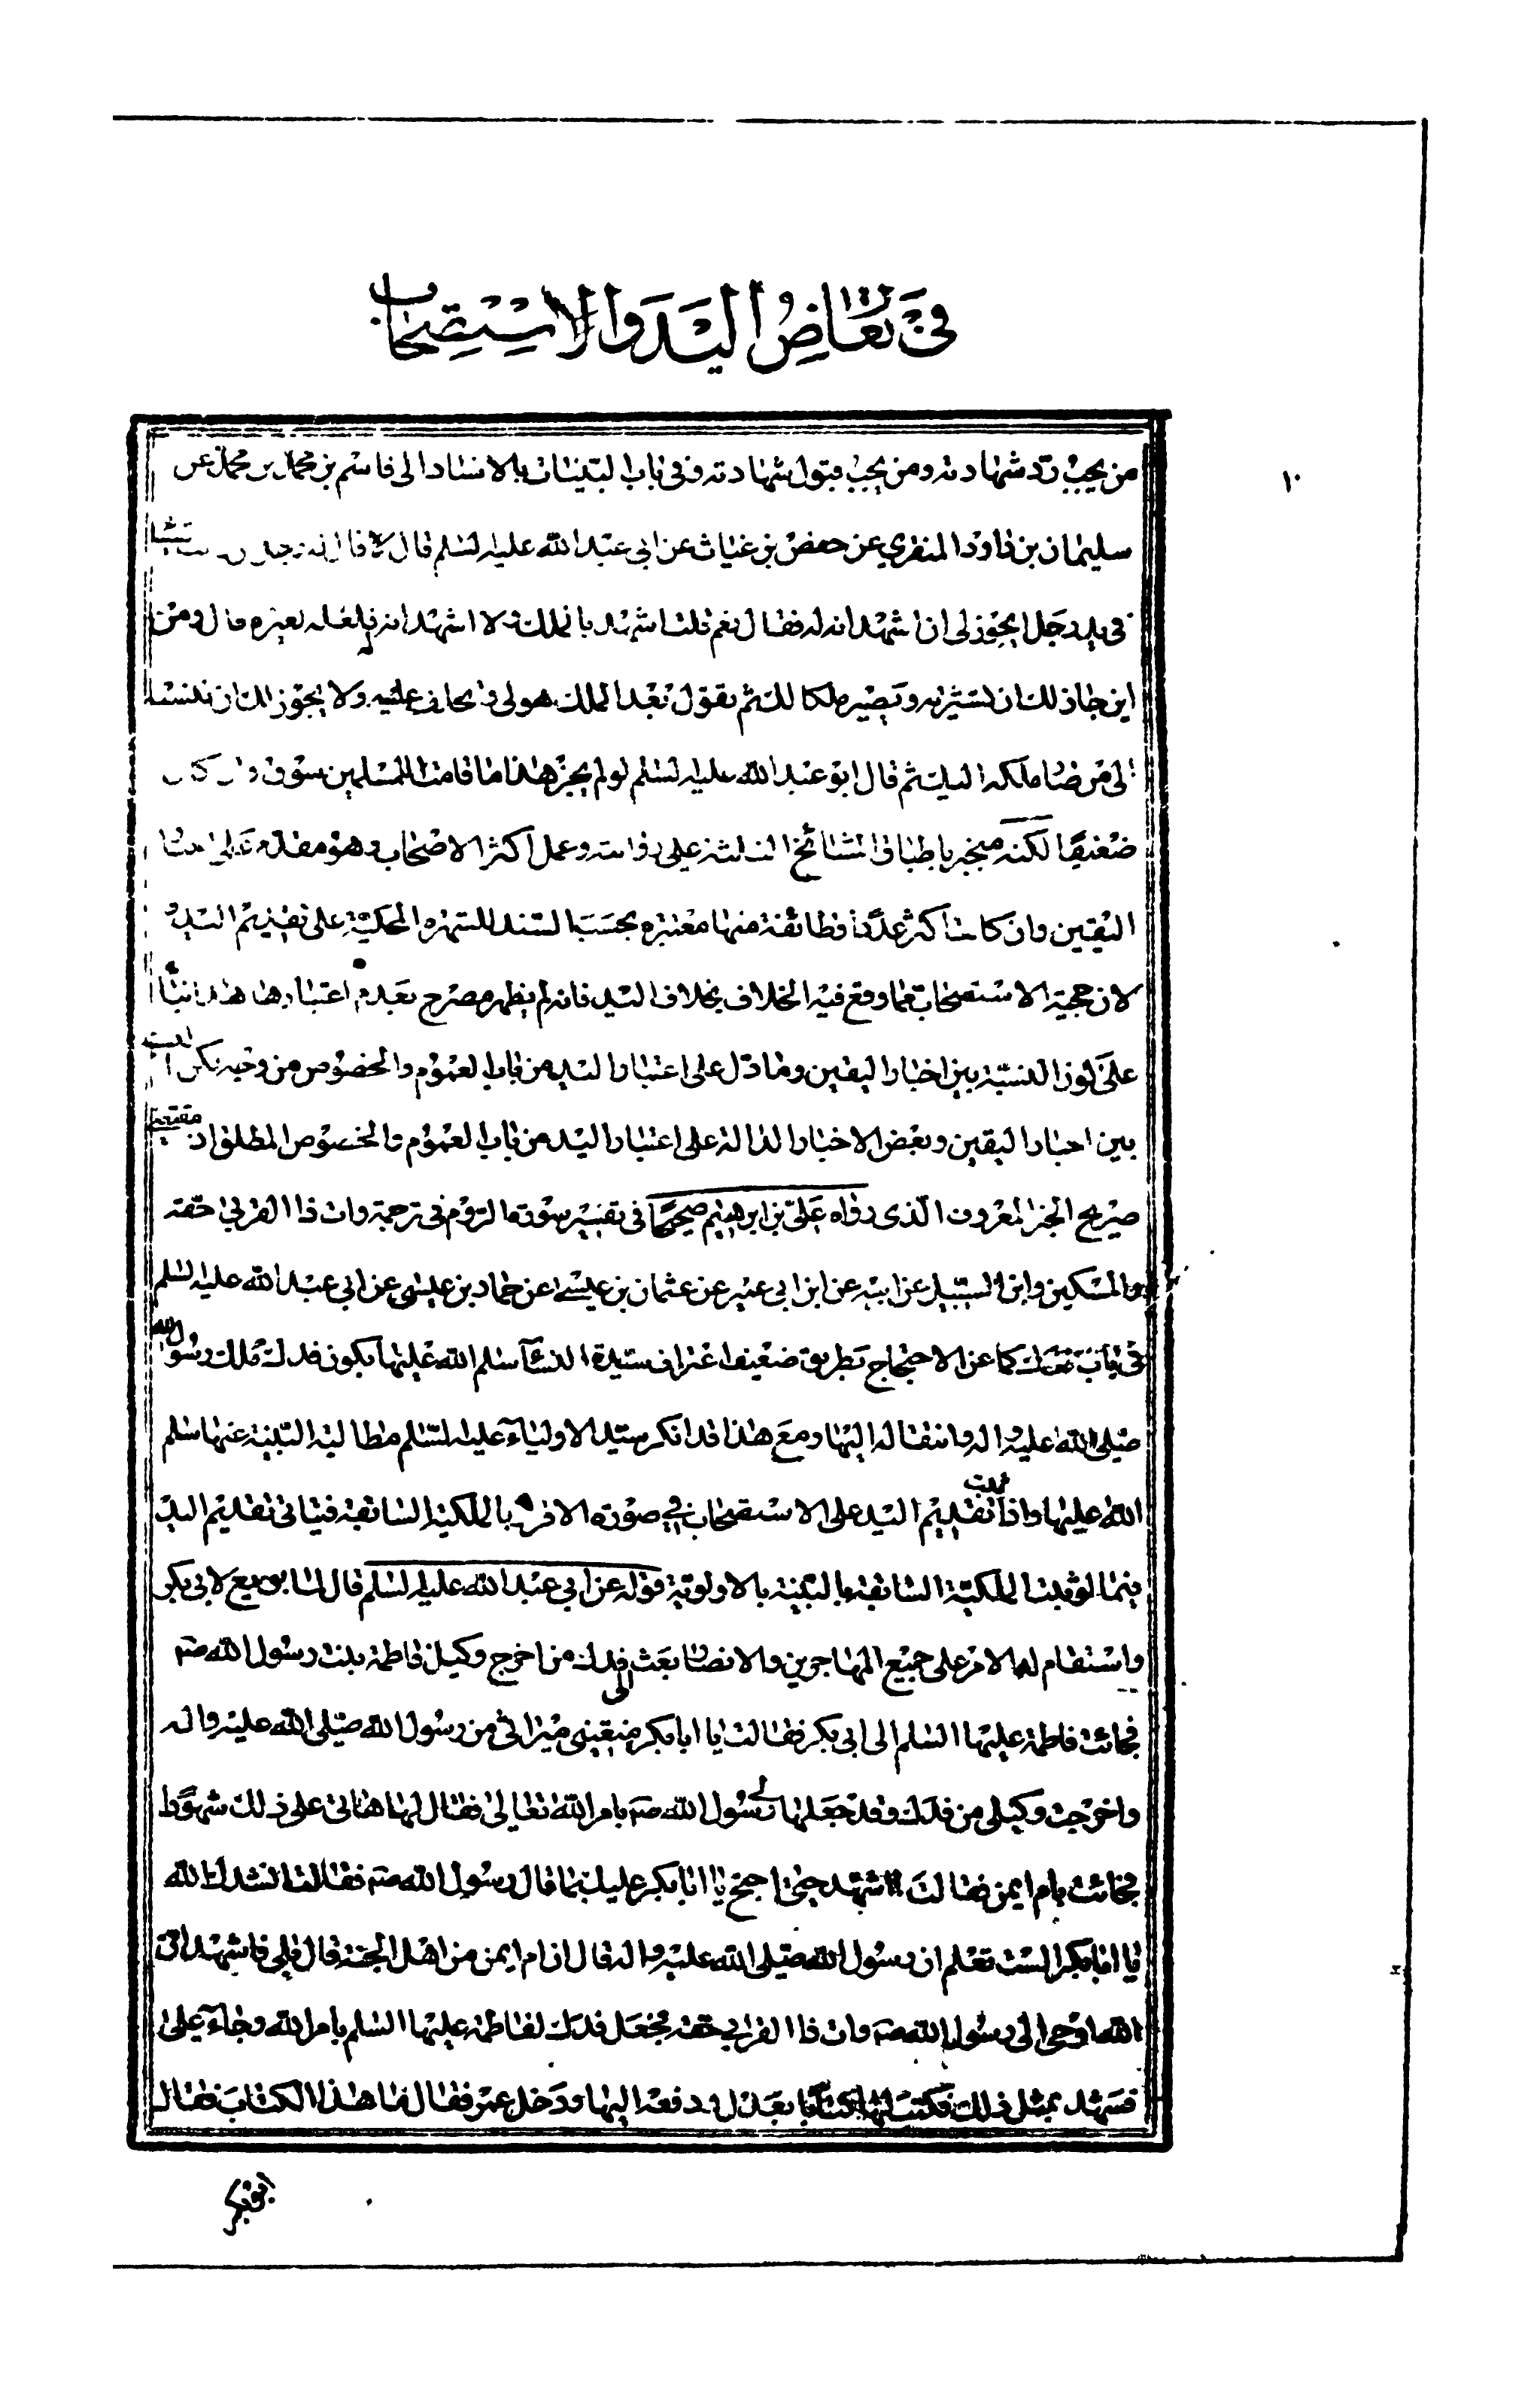 في تعارض اليد والاستصحاب
١٠
من يجب رد شهادته ومن يجب قبول شهادته وفي باب البينات بالاسناد الى قاسم بن محمد بن محمد عن
سليمان بن داود المنقري عن حفص بن غياث عن ابي عبد الله عليه السلم قال قال له رجل
في يد رجل ايجوز لي ان اشهد انه له فقال نعم قلت اشهد بانه لك لا اشهد انه فلعله لغيره قال ومن
اين جاز لك ان تشتريه وتصيره ملكا لك ثم تقول بعد الملك هو لي وتحلف عليه ولا يجوز لك ان تنسبه
الى من صار ملكه اليك ثم قال ابو عبد الله عليه السلم لو لم يجز هذا ما قامت للمسلمين سوق وان كان
ضعيفا لكنه منجبر باطباق المشائخ الثلثة على روايته وعمل اكثر الاصحاب وهو مقدم على
اليقين وان كانت اكثر عددا وطائفة منها معتبرة بحسب السند للشهرة المحكية على تقديم اليد و
لان حجية الاستصحاب مما وقع فيه الخلاف بخلاف اليد فانه لم يظهر مصرح بعدم اعتبارها هذا بناء
على كون النسبة بين اخبار اليقين وما دل على اعتبار اليد من باب العموم والخصوص من وجه لكن النسبة
بين اخبار اليقين وبعض الاخبار الدالة على اعتبار اليد من باب العموم والخصوص المطلق اذ مقتضى
صريح الخبر المعروف الذى رواه على بن ابراهيم صحيحا في تفسير سورة الروم في ترجمة وات ذا القربى حقه
والمسكين وابن السبيل عن ابيه عن ابن ابي عمير عن عثمان بن عيسى عن حماد بن عيسى عن ابي عبد الله عليه السلم
في باب فدك كما عن الاحتجاج بطريق ضعيف اعتراف سيدة النساء سلم الله عليها بكون فدك ملك رسول الله
صلى الله عليه واله وانتقاله اليها ومع هذا قد انكر سيد الاولياء عليه السلم مطالبة البينة عنها سلم
الله عليها واذا ثبت تقديم اليد على الاستصحاب في صورة الاقرار بالملكية السابقة فيتاتى تقديم اليد
فيما لو ثبت الملكية السابقة بالبينة بالاولوية قوله عن ابي عبد الله عليه السلم قال لما بويع لابي بكر
واستقام له الامر على جميع المهاجرين والانصار بعث الى فدك من اخرج وكيل فاطمة بنت رسول الله صم
فجائت فاطمة عليها السلم الى ابي بكر فقالت يا ابا بكر منعتني ميراثي من رسول الله صلى الله عليه واله
واخرجت وكيلى من فدك وقد جعلها لي رسول الله صم بامر الله تعالى فقال لها هاتى على ذلك شهودا
فجائت بام ايمن فقالت لا اشهد حتى احتج يا ابا بكر عليك بما قال رسول الله صم فقالت انشدك الله
يا ابا بكر الست تعلم ان رسول الله صلى الله عليه واله قال ان ام ايمن من اهل الجنة قال بلى فاشهد ان
الله اوحى الى رسول الله صم وات ذا القربى حقه فجعل فدك لفاطمة عليها السلم بامر الله وجاء على
فشهد بمثل ذلك فكتب لها كتابا بفدك ودفعه اليها ودخل عمر فقال ما هذا الكتاب فقال
ابو بكر